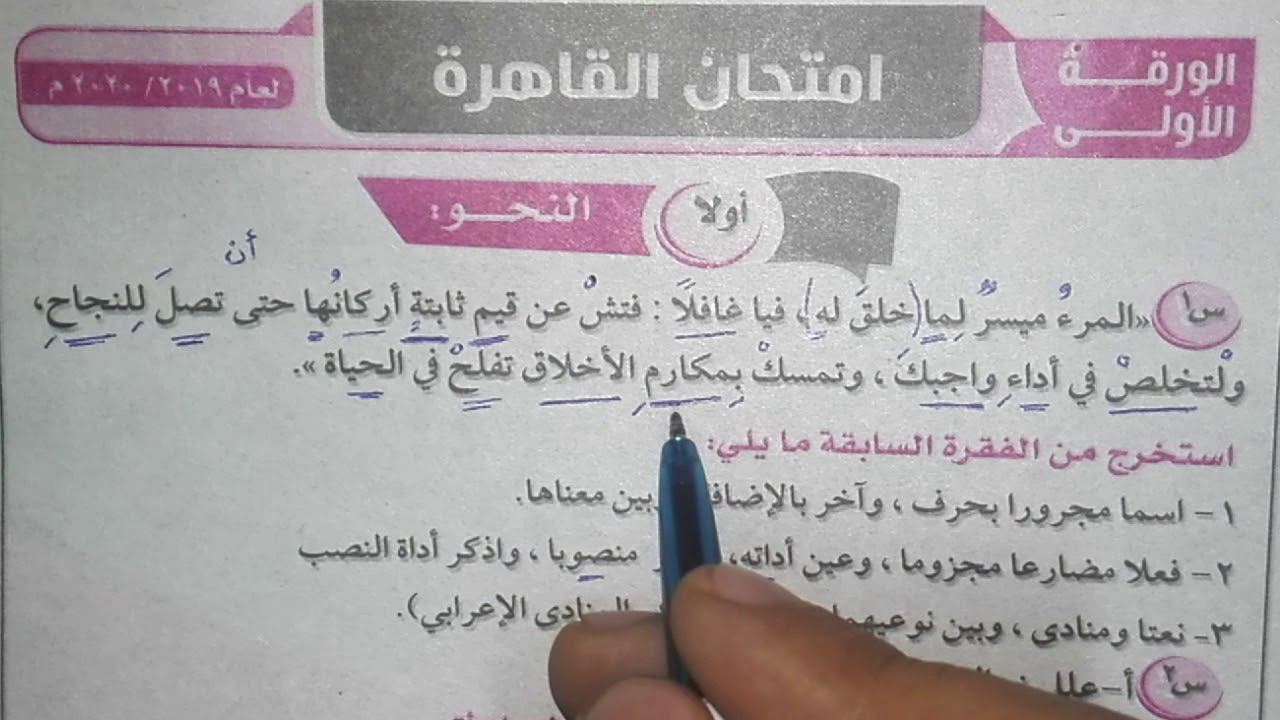 الورقة
الأولى
امتحان القاهرة
لعام ٢٠١٩/ ٢٠٢٠ م
أولا
النحو:
أن
س١ «المرءُ ميسرٌ لِما (خلقَ له)، فيا غافلًا : فتشْ عن قيمٍ ثابتةٍ أركانُها حتى تصلَ لِلنجاحِ،
ولْتخلصْ في أداءِ واجبكَ ، وتمسكْ بِمكارمِ الأخلاق تفلحْ في الحياة ».
استخرج من الفقرة السابقة ما يلي:
١- اسما مجرورا بحرف ، وآخر بالإضافة بين معناها.
٢- فعلا مضارعا مجزوما ، وعين أداته، منصوبا ، واذكر أداة النصب
٣- نعتا ومنادى ، وبين نوعيهما المنادى الإعرابي).
س٢ أ-علل